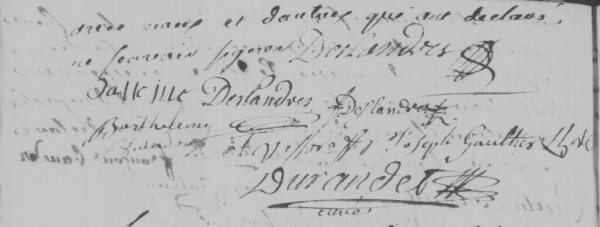 avec nous et dautres qui ont declaré
ne scavoir signer Deslandres
Jacque Deslandres J Deslandres
Barthelemy
Joseph Gaultier
Durandet
curé